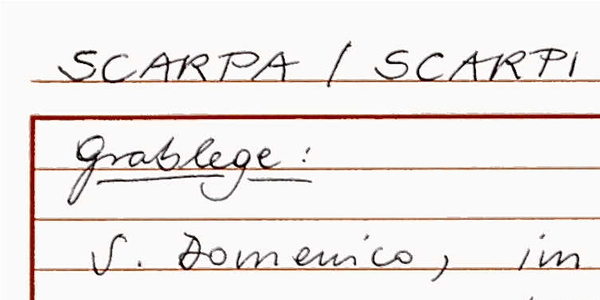 SCARPA / SCARPI
Grablege:
S. Domenico, im